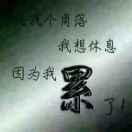 找个角落
我想休息
因为我
累
了!